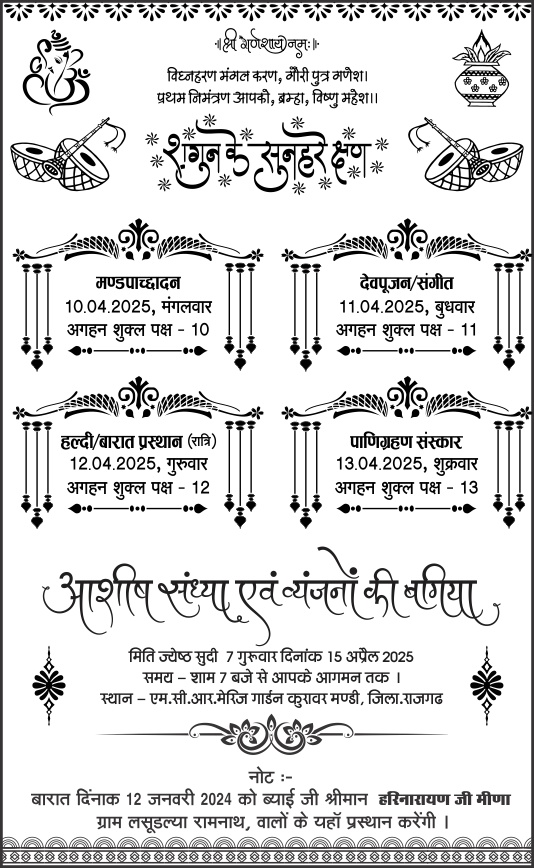 ॥श्री गणेशाय नमः॥
विघ्नहरण मंगल करण, गौरी पुत्र गणेश।
प्रथम निमंत्रण आपको, ब्रम्हा, विष्णु महेश।।
शगुन के सुनहरे क्षण
मण्डपाच्छादन
10.04.2025, मंगलवार
अगहन शुक्ल पक्ष - 10
देवपूजन/संगीत
11.04.2025, बुधवार
अगहन शुक्ल पक्ष - 11
हल्दी/बारात प्रस्थान (रात्रि)
12.04.2025, गुरुवार
अगहन शुक्ल पक्ष - 12
पाणिग्रहण संस्कार
13.04.2025, शुक्रवार
अगहन शुक्ल पक्ष - 13
आशीष संध्या एवं व्यंजनों की बगिया
मिति ज्येष्ठ सुदी 7 गुरूवार दिनांक 15 अप्रैल 2025
समय – शाम 7 बजे से आपके आगमन तक ।
स्थान – एम.सी.आर.मेरिज गार्डन कुरावर मण्डी, जिला.राजगढ
नोट :-
बारात दिंनाक 12 जनवरी 2024 को ब्याई जी श्रीमान हरिनारायण जी मीणा
ग्राम लसूडल्या रामनाथ, वालों के यहाॅ प्रस्थान करेंगी ।